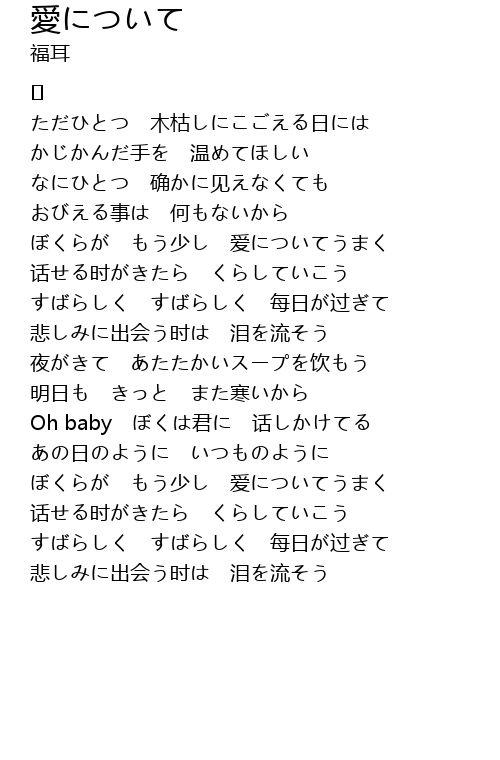 愛について
福耳
ただひとつ　木枯しにこごえる日には
かじかんだ手を　温めてほしい
なにひとつ　确かに见えなくても
おびえる事は　何もないから
ぼくらが　もう少し　爱についてうまく
话せる时がきたら　くらしていこう
すばらしく　すばらしく　每日が过ぎて
悲しみに出会う时は　泪を流そう
夜がきて　あたたかいスープを饮もう
明日も　きっと　また寒いから
Oh baby　ぼくは君に　话しかけてる
あの日のように　いつものように
ぼくらが　もう少し　爱についてうまく
话せる时がきたら　くらしていこう
すばらしく　すばらしく　每日が过ぎて
悲しみに出会う时は　泪を流そう